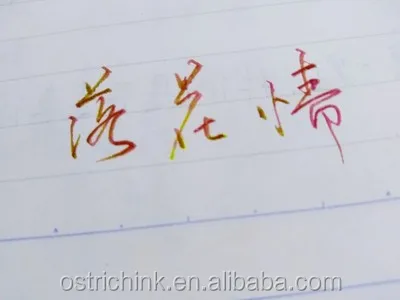 落花情
ostrichink.en.alibaba.com